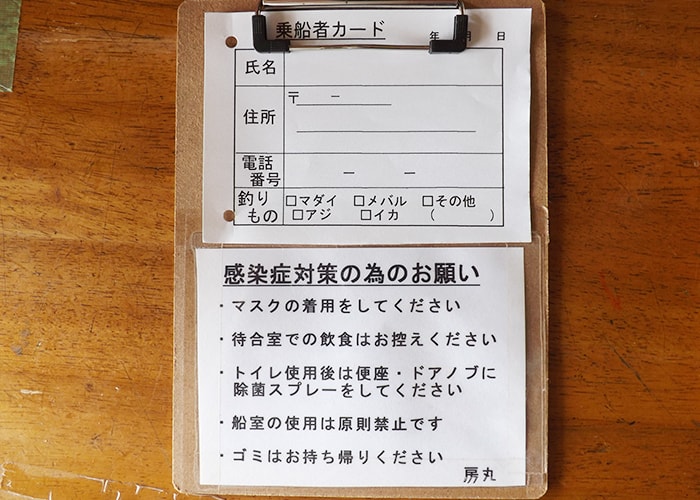 乗船者カード
年 月 日
氏名
住所
〒 －
電話
番号
－ －
釣り
もの
□マダイ □メバル □その他
□アジ □イカ ( )
感染症対策の為のお願い
・マスクの着用をしてください
・待合室での飲食はお控えください
・トイレ使用後は便座・ドアノブに
除菌スプレーをしてください
・船室の使用は原則禁止です
・ゴミはお持ち帰りください
房丸